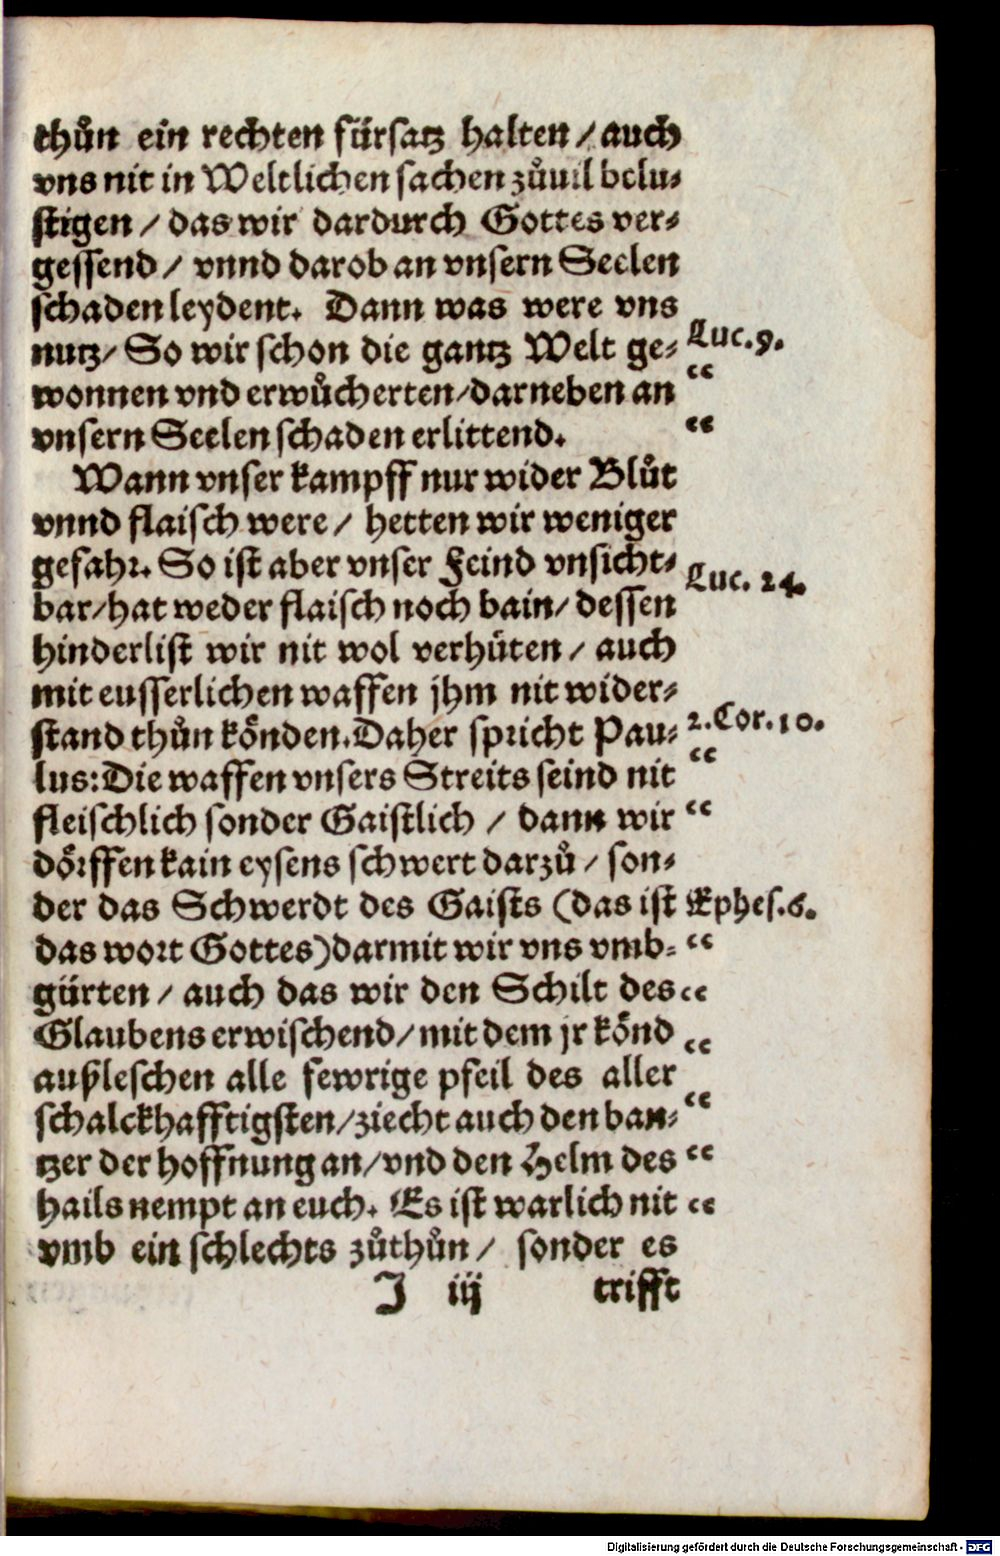 thůn ein rechten fürsatz halten / auch
vns nit in Weltlichen sachen zůuil belu⸗
stigen / das wir dardurch Gottes ver⸗
gessend / vnnd darob an vnsern Seelen
schaden leydent. Dann was were vns
nutz / So wir schon die gantz Welt ge⸗ Luc. 9.
wonnen vnd erwůcherten / darneben an “
vnsern Seelen schaden erlittend. “
Wann vnser kampff nur wider Blůt
vnnd flaisch were / hetten wir weniger
gefahr. So ist aber vnser Feind vnsicht⸗
bar / hat weder flaisch noch bain / dessen Luc. 24.
hinderlist wir nit wol verhüten / auch
mit eusserlichen waffen jhm nit wider⸗
stand thůn könden. Daher spricht Pau⸗ 2. Cor. 10.
lus: Die waffen vnsers Streits seind nit “
fleischlich sonder Gaistlich / dann wir “
dörffen kain eysens schwert darzů / son⸗
der das Schwerdt des Gaists (das ist Ephes. 6.
das wort Gottes) darmit wir vns vmb⸗ “
gürten / auch das wir den Schilt des “
Glaubens erwischend / mit dem jr könd “
außleschen alle fewrige pfeil des aller
schalckhafftigsten / ziecht auch den ban⸗ “
tzer der hoffnung an / vnd den Helm des “
hails nempt an euch. Es ist warlich nit “
vmb ein schlechts zůthůn / sonder es
J iij trifft
Digitalisierung gefördert durch die Deutsche Forschungsgemeinschaft - DFG